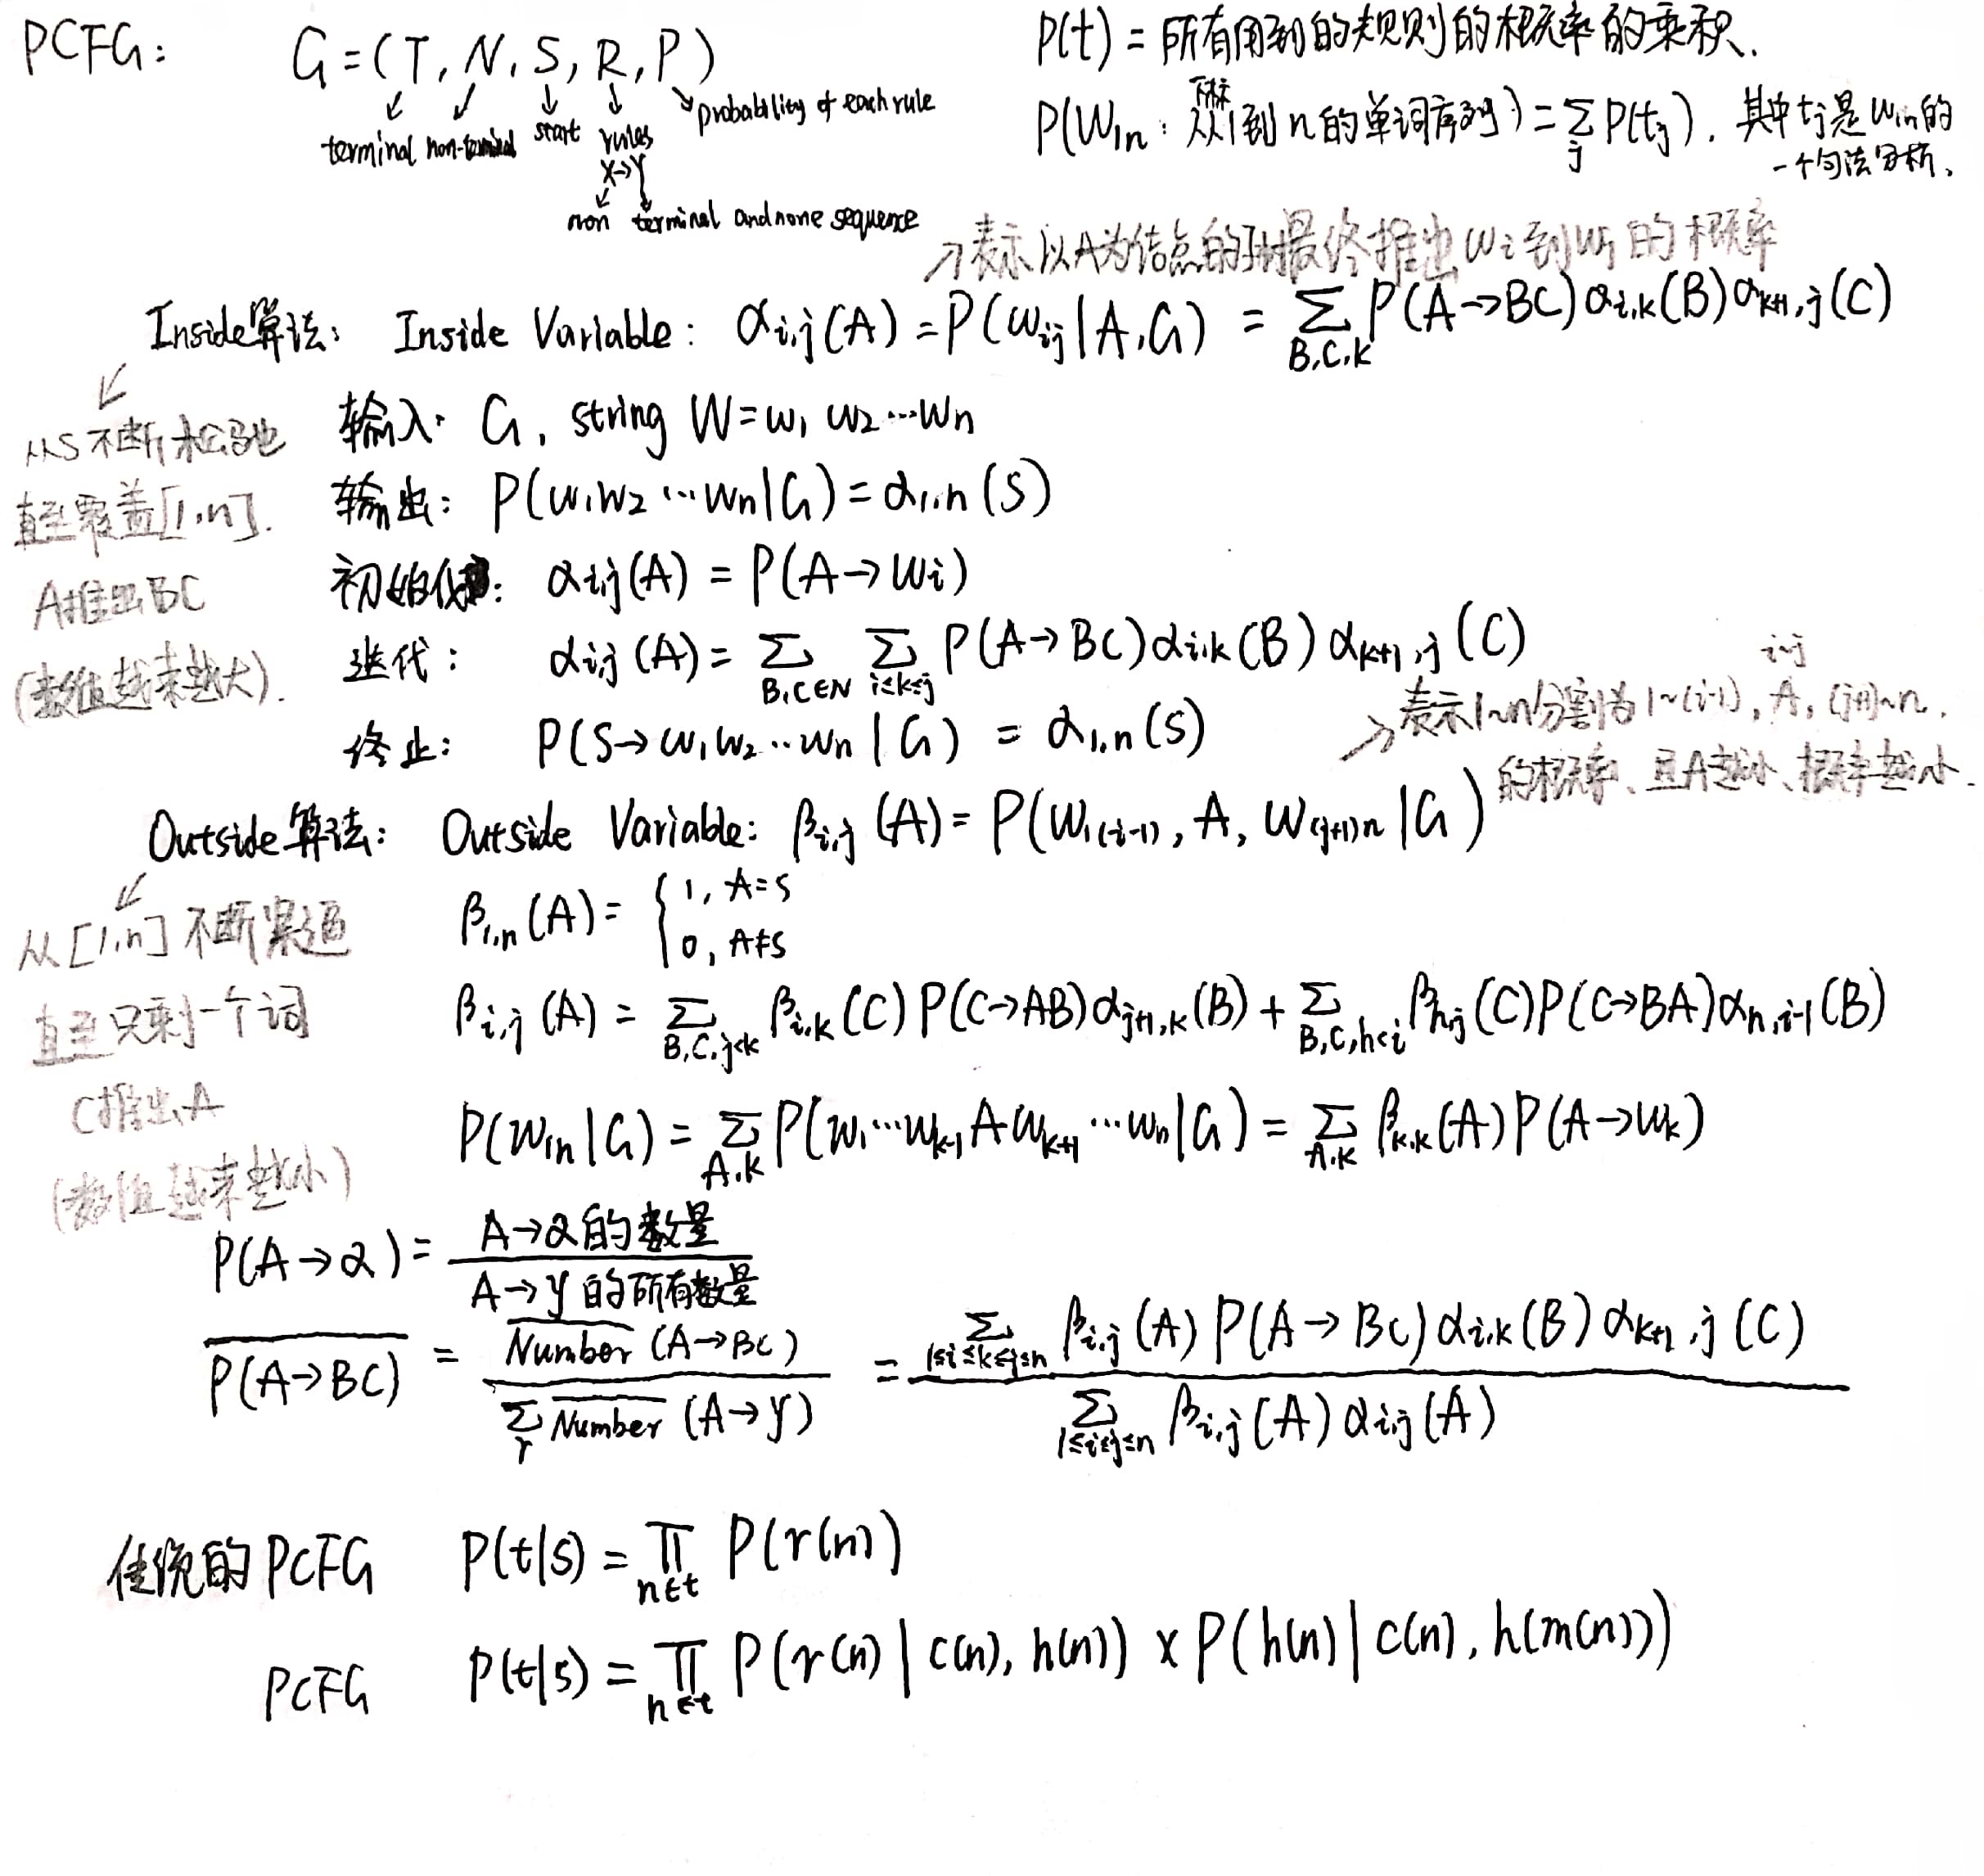 PCFG: G=(T, N, S, R, P)
terminal non-terminal start rules probability of each rule
X→Y
non terminal and none sequence
P(t) = 所有用到的规则的概率的乘积.
P(W1n: 从1到n的单词序列) = ∑j P(tj). 其中tj是W1n的
一个句法分析.
表示以A为结点的子树最终推出wi到wj的概率
Inside算法: Inside Variable: αi,j(A) = P(wij|A,G) = ∑B,C,k P(A→BC)αi,k(B)αk+1,j(C)
输入: G, string W=w1 w2…wn
输出: P(w1w2…wn|G) = α1,n(S)
初始化: αij(A) = P(A→wi)
迭代: αi,j(A) = ∑B,C∈N ∑i≤k≤j P(A→BC)αi,k(B)αk+1,j(C)
终止: P(S→w1w2…wn|G) = α1,n(S)
直至覆盖[1,n].
A推出BC
(数值越来越大).
i~j
表示1~n分割为1~(i-1), A, (j+1)~n.
的概率、且A越小、概率越小.
Outside算法: Outside Variable: βi,j(A) = P(W1(i-1), A, W(j+1)n|G)
从[1,n]不断
直至只剩一个词
C推出A
(数值越来越小)
β1,n(A) = { 1, A=S
0, A≠S
βi,j(A) = ∑B,C,j<k βi,k(C)P(C→AB)αj+1,k(B) + ∑B,C,h<i βh,j(C)P(C→BA)αh,i-1(B)
P(W1n|G) = ∑A,k P(w1…wk-1 A wk+1…wn|G) = ∑A,k βk,k(A)P(A→wk)
P(A→α) = A→α的数量 / A→y的所有数量
P(A→BC) = Number(A→BC) / ∑Y Number(A→y) = ∑1≤i≤k≤j≤n βi,j(A)P(A→BC)αi,k(B)αk+1,j(C) / ∑1≤i≤j≤n βi,j(A)αi,j(A)
传统的PCFG P(t|s) = ∏n∈t P(r(n))
PCFG P(t|s) = ∏n∈t P(r(n)|c(n), h(n)) x P(h(n)|c(n), h(m(n)))